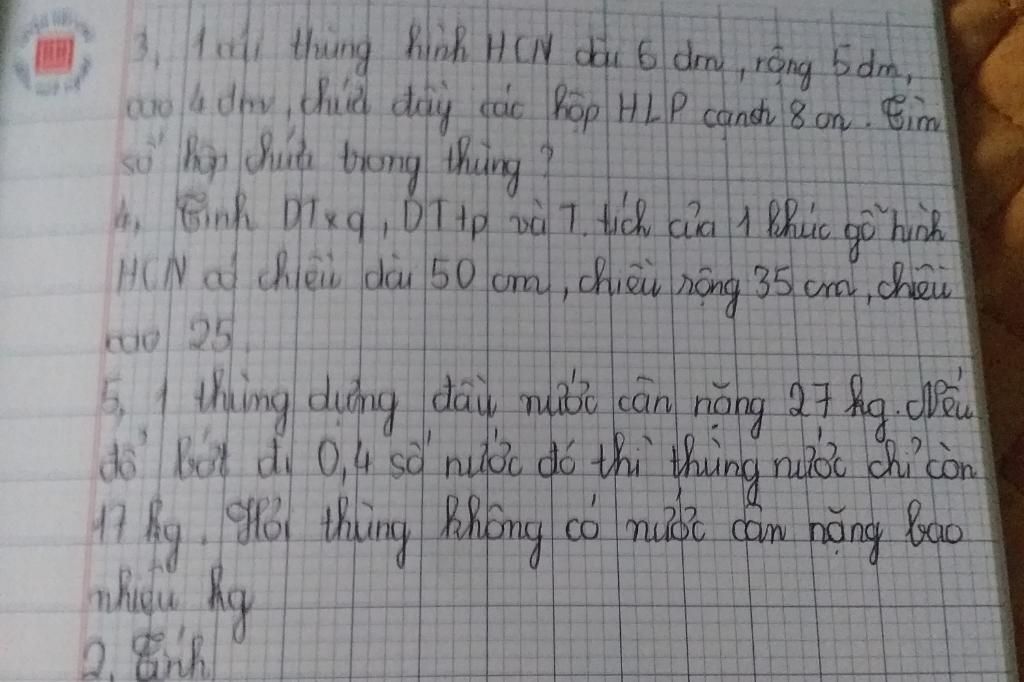 3, 1 cái thùng hình HCN dài 6 dm, rộng 5 dm,
cao 4 dm, chứa đầy các hộp HLP cạnh 8 cm. Tìm
số hộp chứa trong thùng?
4, Tính DTxq, DTtp và T. tích của 1 khúc gỗ hình
HCN có chiều dài 50 cm, chiều rộng 35 cm, chiều
cao 25
5, 1 thùng đựng đầy nước cân nặng 27 kg. Nếu
đổ bớt đi 0,4 số nước đó thì thùng nước chỉ còn
17 kg. Hỏi thùng không có nước cân nặng bao
nhiêu kg
2. Tính